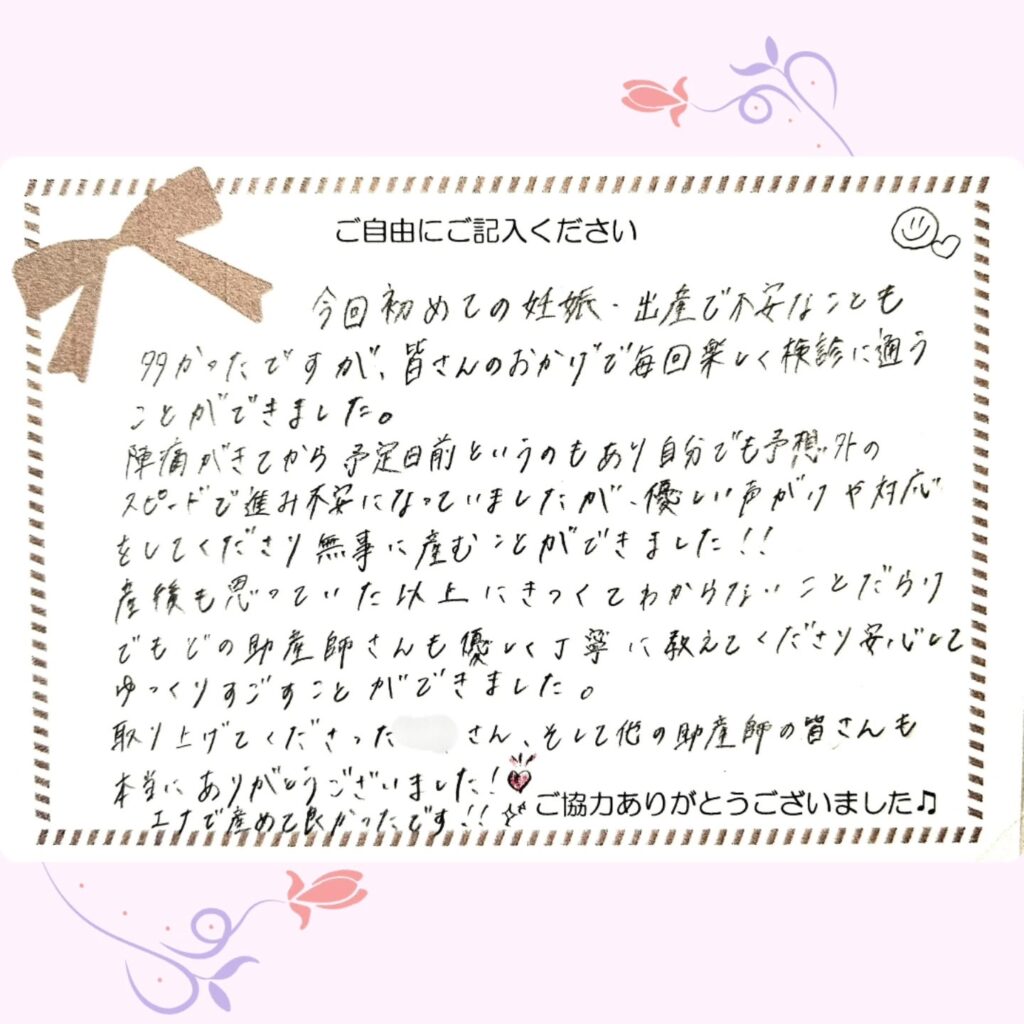 ご自由にご記入ください
今回初めての妊娠・出産で不安なことも
多かったですが、皆さんのおかげで毎回楽しく検診に通う
ことができました。
陣痛がきてから予定日前というのもあり自分でも予想外の
スピードで進み不安になっていましたが、優しい声がけや対応
をしてくださり無事に産むことができました!!
産後も思っていた以上にきつくてわからないことだらけ
でもどの助産師さんも優しく丁寧に教えてくださり安心して
ゆっくりすごすことができました。
取り上げてくださった さん、そして他の助産師の皆さんも
本当にありがとうございました!
エナで産めて良かったです!!
ご協力ありがとうございました♫